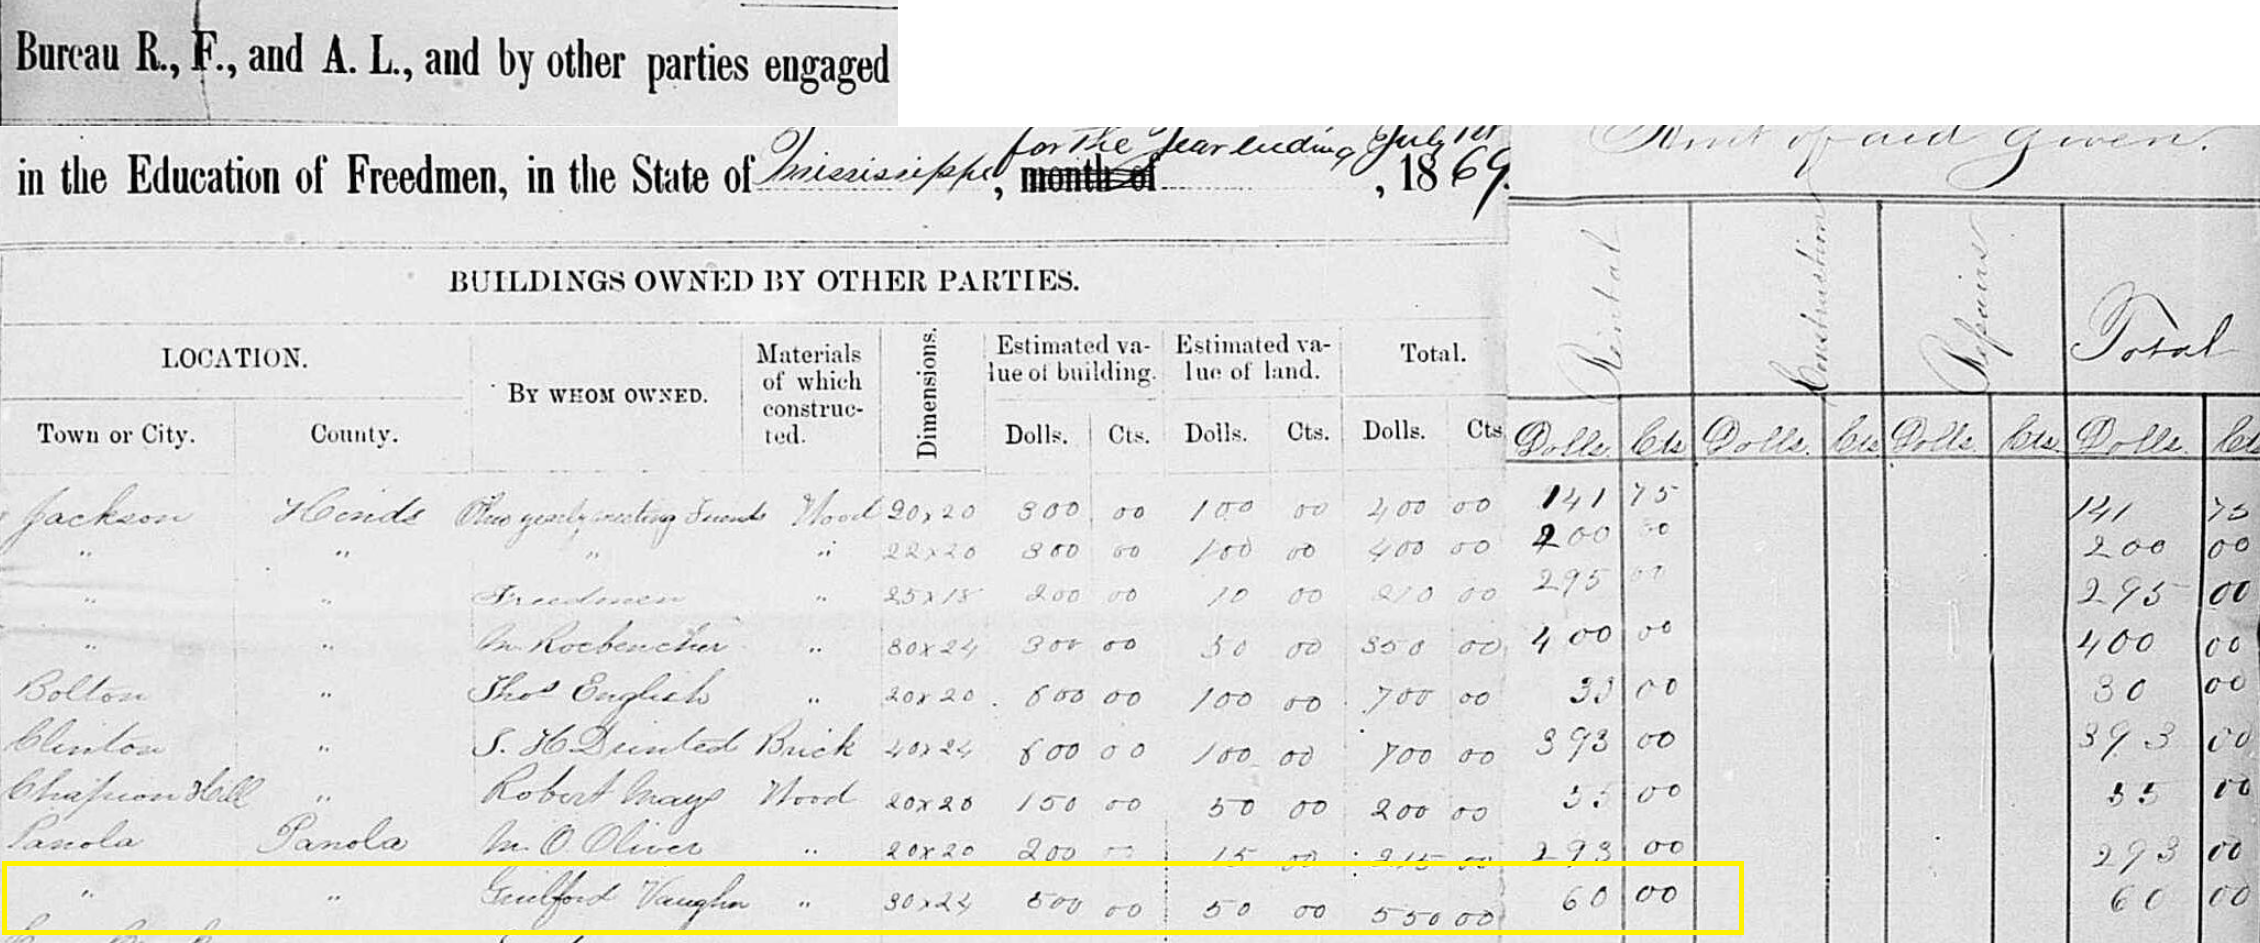 Bureau R., F., and A. L., and by other parties engaged
for the Year ending July 1st
in the Education of Freedmen, in the State of Mississippi, month of , 1869.
Amt of aid Given.
BUILDINGS OWNED BY OTHER PARTIES.
LOCATION. BY WHOM OWNED. Materials of which construc-ted. Dimensions. Estimated va-lue of building. Estimated va-lue of land. Total. Rental Construction Repairs Total
Town or City. County. Dolls. Cts. Dolls. Cts. Dolls. Cts Dolls. Cts Dolls. Cts Dolls Cts. Dolls. Cts
Jackson Hinds Ohio yearly meeting Friends Wood 20x20 300 00 100 00 400 00 141 75 141 75
" " " " 22x20 300 00 100 00 400 00 200 00 200 00
" " Freedmen " 25x18 200 00 10 00 210 00 295 00 295 00
" " M. " 30x24 300 00 50 00 350 00 400 00 400 00
Bolton " Thos English " 20x20 600 00 100 00 700 00 00 30 00
Clinton " S. H. Brick 40x24 600 00 100 00 700 00 393 00 393 00
Champion Hill " Robert Mays Wood 20x20 150 00 50 00 200 00 55 00 55 00
Panola Panola M. O. Oliver " 20x20 200 00 15 00 215 00 293 00 293 00
" " Guilford Vaughn " 30x24 500 00 50 00 550 00 60 00 60 00